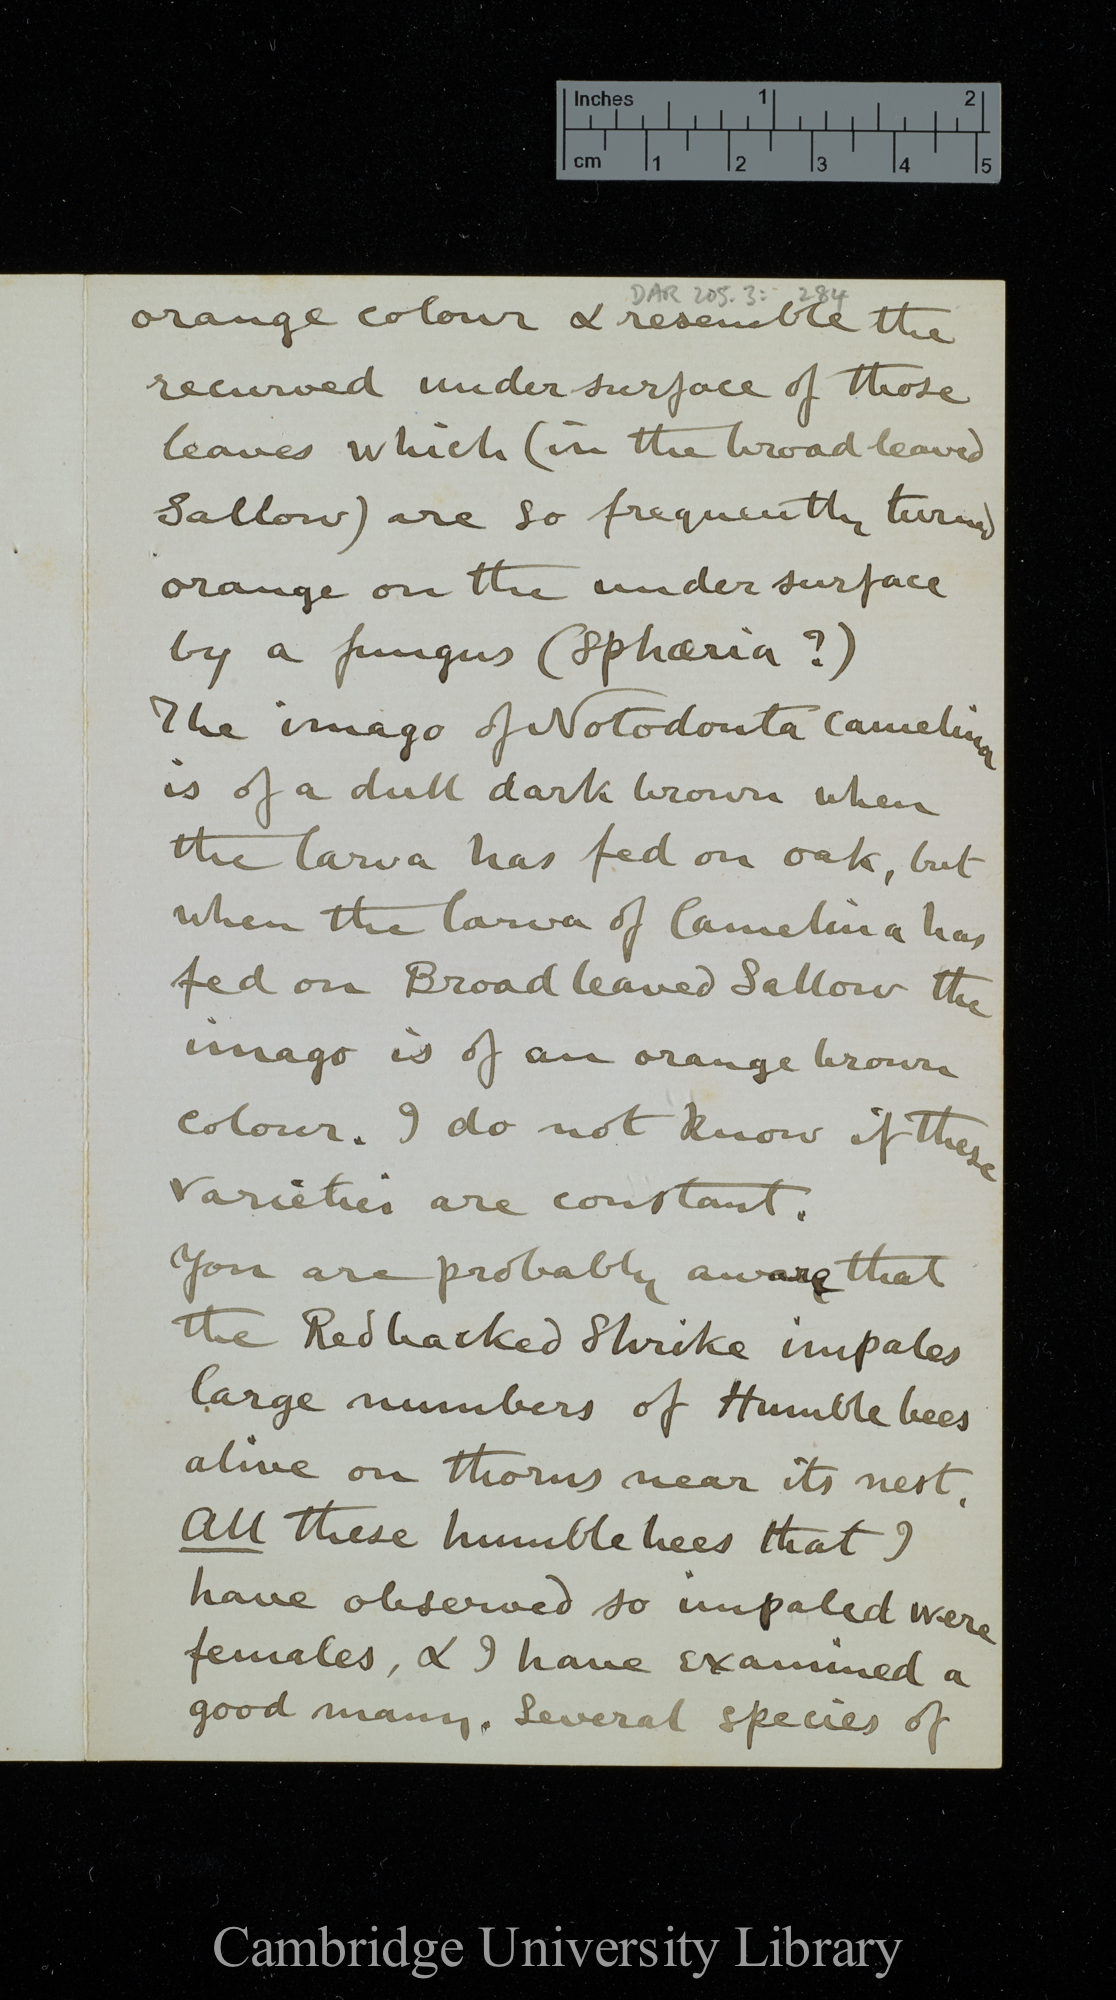 Inches 1 2
cm 1 2 3 4 5
DAR 205.3: 284
orange colour & resemble the
recurved under surface of those
leaves which (in the broad leaved
Sallow) are so frequently turned
orange on the under surface
by a fungus (Sphæria ?)
The imago of Notodonta Camelina
is of a dull dark brown when
the larva has fed on oak, but
when the larva of Camelina has
fed on Broad leaved Sallow the
imago is of an orange brown
colour. I do not know if these
varieties are constant.
You are probably aware that
the Redbacked Shrike impales
large numbers of Humble bees
alive on thorns near its nest.
All these humble bees that I
have observed so impaled were
females, & I have examined a
good many. Several species of
Cambridge University Library